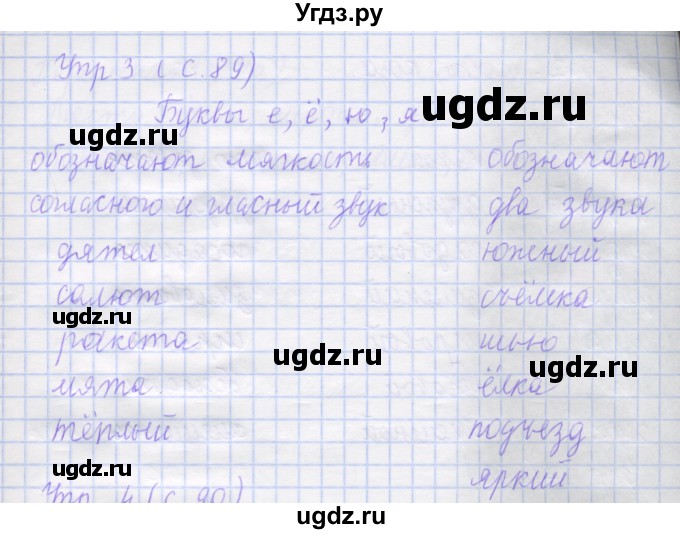 Угдз.ру
Упр 3 (с. 89)
Буквы е, ё, ю, я
ugdz.ru
ugdz.ru
обозначают мягкость обозначают
согласного и гласный звук два звука
дятел южный
салют съёмка
ugdz.ru
ракета шью
ugdz.ru
ugdz.ru
мята ёлка
ugdz.ru
тёплый подъезд
ugdz.ru
яркий
Упр 4 (с. 90)
ugdz.ru